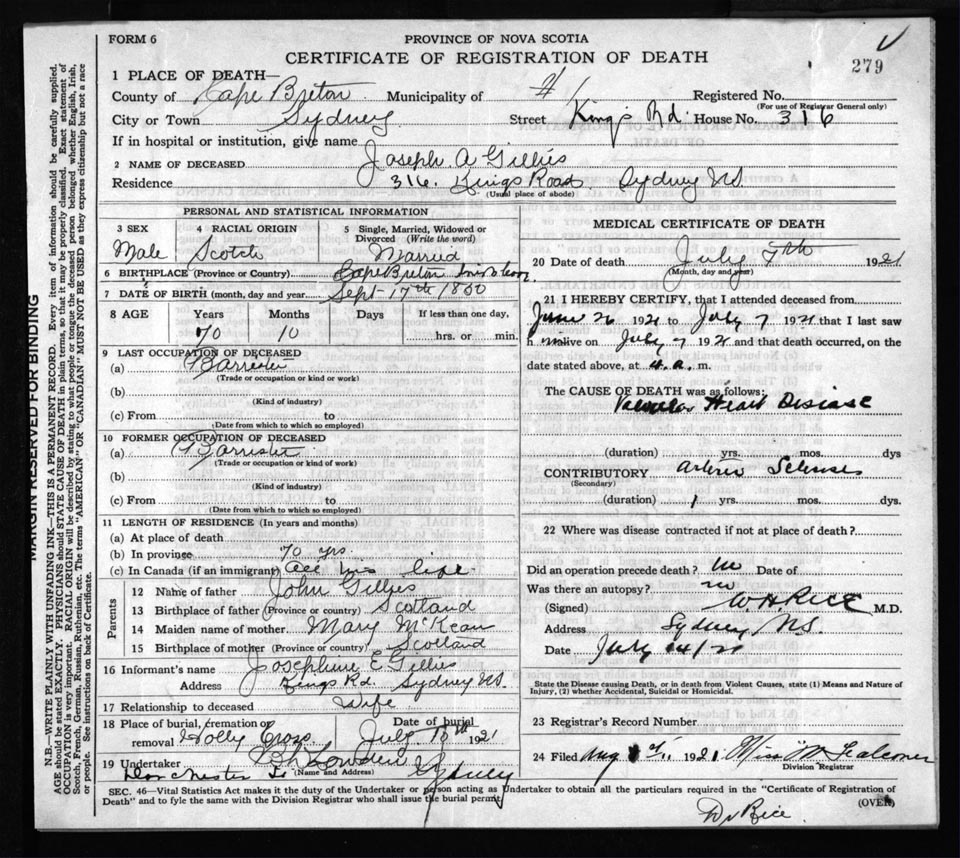 FORM 6
PROVINCE OF NOVA SCOTIA
CERTIFICATE OF REGISTRATION OF DEATH
279
1 PLACE OF DEATH—
County of Cape Breton Municipality of Registered No.
(For use of Registrar General only)
City or Town Sydney Street Kings Rd. House No. 316
If in hospital or institution, give name
2 NAME OF DECEASED Joseph A Gillies
Residence 316. Kings Road Sydney NS.
(Usual place of abode)
PERSONAL AND STATISTICAL INFORMATION
3 SEX Male
4 RACIAL ORIGIN Scotch
5 Single, Married, Widowed or Divorced (Write the word) Married
6 BIRTHPLACE (Province or Country) Cape Breton
7 DATE OF BIRTH (month, day and year) Sept 17th 1850
8 AGE Years Months Days If less than one day,
70 10 hrs. or min.
9 LAST OCCUPATION OF DECEASED
(a) Barrister
(Trade or occupation or kind or work)
(b)
(Kind of industry)
(c) From to
(Date from which to which so employed)
10 FORMER OCCUPATION OF DECEASED
(a) Barrister
(Trade or occupation or kind of work)
(b)
(Kind of industry)
(c) From to
(Date from which to which so employed)
11 LENGTH OF RESIDENCE (In years and months)
(a) At place of death
(b) In province 70 yrs.
(c) In Canada (if an immigrant) All his life
Parents
12 Name of father John Gillies
13 Birthplace of father (Province or country) Scotland
14 Maiden name of mother Mary McKean
15 Birthplace of mother (Province or country) Scotland
16 Informant's name Josephine E Gillies
Address Kings Rd. Sydney NS.
17 Relationship to deceased Wife
18 Place of burial, cremation or removal Holly Cross Date of burial July 10th 1921
19 Undertaker
(Name and Address)
Dorchester St Sydney
MEDICAL CERTIFICATE OF DEATH
20 Date of death July 7th 1921
(Month, day and year)
21 I HEREBY CERTIFY, that I attended deceased from
June 26 1921 to July 7 1921 that I last saw
h im alive on July 7 1921 and that death occurred, on the
date stated above, at 4. a. m.
The CAUSE OF DEATH was as follows:
Valvular Heart Disease
(duration) yrs. mos. dys
CONTRIBUTORY Arterio Sclerosis
(Secondary)
(duration) 1 yrs. mos. dys.
22 Where was disease contracted if not at place of death?
Did an operation precede death? no Date of
Was there an autopsy? no
(Signed) W H. Rice M.D.
Address Sydney N.S.
Date July 14/21
State the Disease causing Death, or in death from Violent Causes, state (1) Means and Nature of
Injury, (2) whether Accidental, Suicidal or Homicidal.
23 Registrar's Record Number
24 Filed Aug 1921
Division Registrar
SEC. 46—Vital Statistics Act makes it the duty of the Undertaker or person acting as Undertaker to obtain all the particulars required in the "Certificate of Registration of
Death" and to fyle the same with the Division Registrar who shall issue the burial permit
(OVER)
Dr Rice.
MARGIN RESERVED FOR BINDING
N.B.—WRITE PLAINLY WITH UNFADING INK—THIS IS A PERMANENT RECORD. Every item of information should be carefully supplied.
AGE should be stated EXACTLY. PHYSICIANS should STATE CAUSE OF DEATH in plain terms, so that it may be properly classified. Exact statement of
OCCUPATION is very important. RACIAL ORIGIN will be described by stating to what people or tongue the deceased person belonged whether English, Irish,
Scotch, French, German, Russian, Ruthenian, etc. The terms "AMERICAN" OR "CANADIAN" MUST NOT BE USED as they express citizenship but not a race
or people. See instructions on back of Certificate.